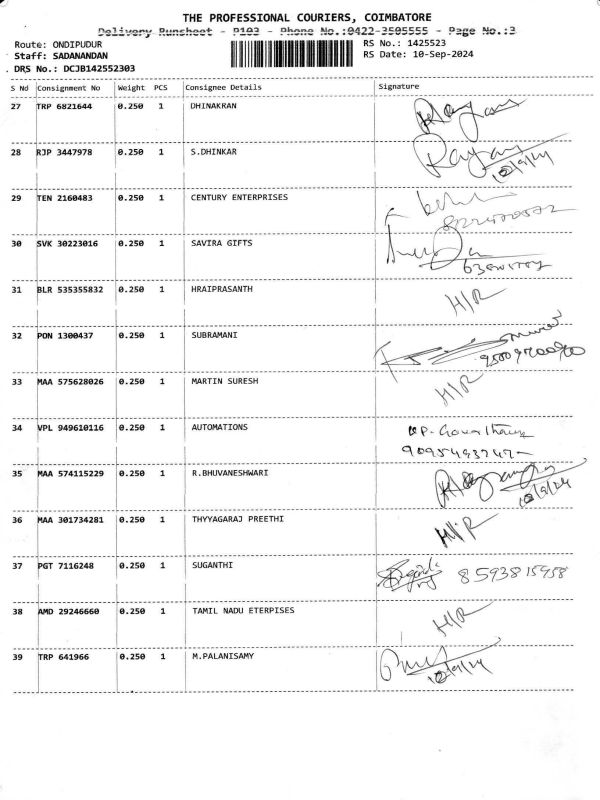 THE PROFESSIONAL COURIERS, COIMBATORE
Delivery Runsheet - P103 - Phone No.:0422-3505555 - Page No.:3
Route: ONDIPUDUR
RS No.: 1425523
Staff: SADANANDAN
RS Date: 10-Sep-2024
DRS No.: DCJB142552303
S No Consignment No Weight PCS Consignee Details Signature
27 TRP 6821644 0.250 1 DHINAKRAN
28 RJP 3447978 0.250 1 S.DHINKAR
10/9/24
29 TEN 2160483 0.250 1 CENTURY ENTERPRISES
30 SVK 30223016 0.250 1 SAVIRA GIFTS
31 BLR 535355832 0.250 1 HRAIPRASANTH H/R
32 PON 1300437 0.250 1 SUBRAMANI
33 MAA 575628026 0.250 1 MARTIN SURESH H/R
34 VPL 949610116 0.250 1 AUTOMATIONS
9095493747
35 MAA 574115229 0.250 1 R.BHUVANESHWARI
10/9/24
36 MAA 301734281 0.250 1 THYYAGARAJ PREETHI H/R
37 PGT 7116248 0.250 1 SUGANTHI 8593815958
38 AMD 29246660 0.250 1 TAMIL NADU ETERPISES H/R
39 TRP 641966 0.250 1 M.PALANISAMY
10/9/24